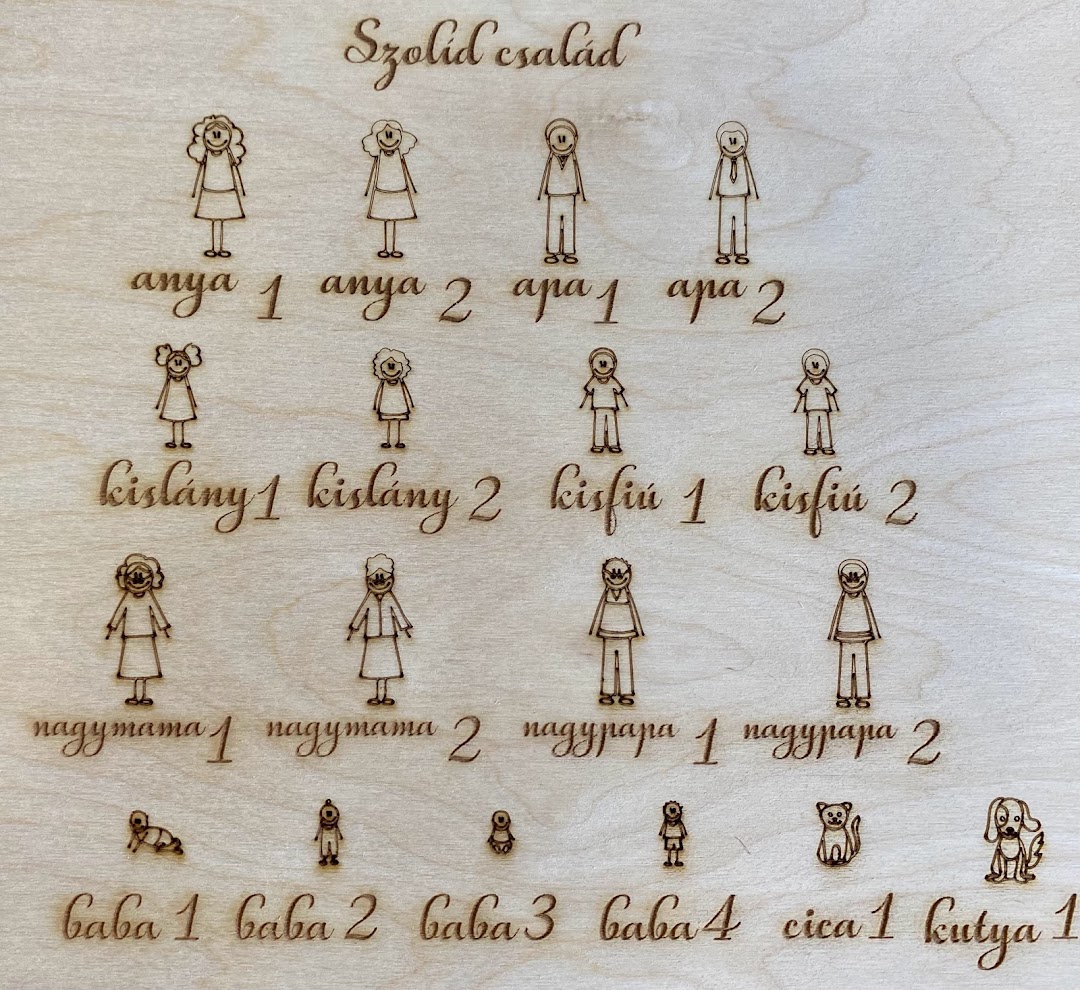 Szolid család
anya 1 anya 2 apa 1 apa 2
kislány 1 kislány 2 kisfiú 1 kisfiú 2
nagymama 1 nagymama 2 nagypapa 1 nagypapa 2
baba 1 baba 2 baba 3 baba 4 cica 1 kutya 1